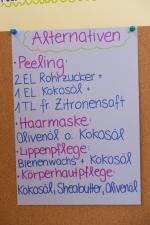 Alternativen
• Peeling:
2 EL Rohrzucker +
1 EL Kokosöl +
1 TL fr. Zitronensaft
• Haarmaske:
Olivenöl o. Kokosöl
• Lippenpflege:
Bienenwachs + Kokosöl
• Körperhautpflege:
Kokosöl, Sheabutter, Olivenöl